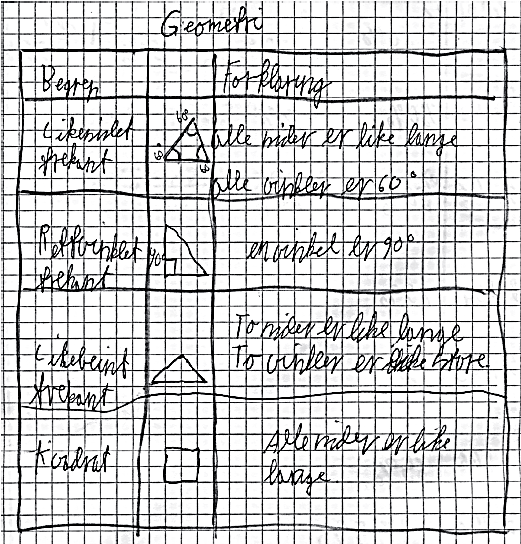 Geometri
Begrep Forklaring
Likesidet 60° alle sider er like lange
trekant 60° 60 alle vinkler er 60°
Rettvinklet 90° en vinkel er 90°
trekant
To sider er like lange
Likebeint To vinkler er like store
trekant
Kvadrat Alle sider er like
lange